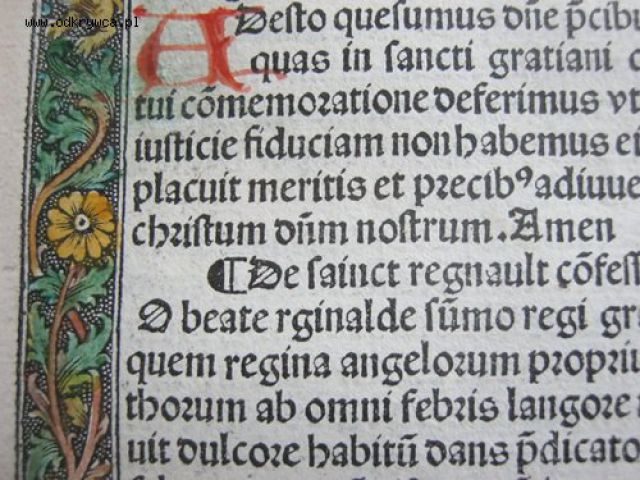 www.odkrywca.pl
Adesto quesumus dn̄e p̄cib
quas in sancti gratiani
tui cōmemoratione deferimus vt
iusticie fiduciam non habemus ei
placuit meritis et precibꝰ adiuue
christum dn̄m nostrum. Amen
¶ De sainct regnault cōfess
O beate rginalde sūmo regi gr
quem regina angelorum propri
thorum ab omni febris langore
uit dulcore habitū dans p̄dicato